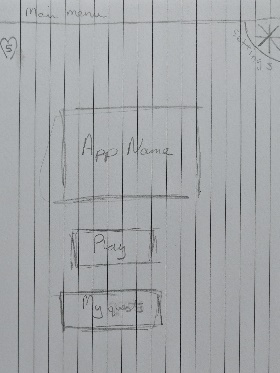 Main menu
5
Settings
App Name
Play
My quests